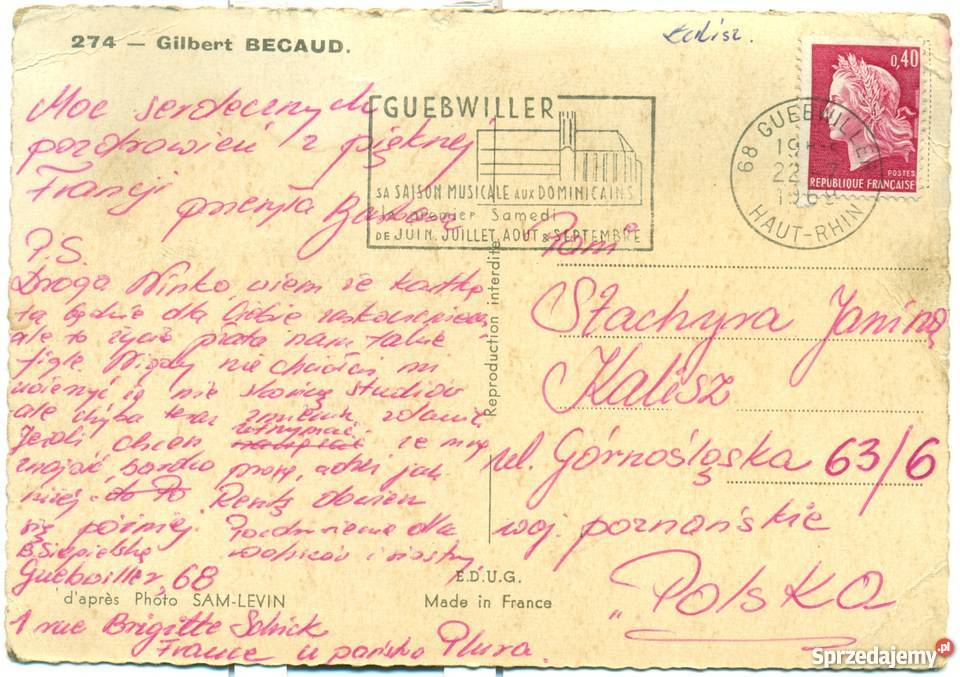 274 — Gilbert BECAUD.
Kalisz.
0,40
POSTES
REPUBLIQUE FRANÇAISE
68 GUEBWILLER
19
22
1969
HAUT-RHIN
GUEBWILLER
SA SAISON MUSICALE AUX DOMINICAINS
premier Samedi
DE JUIN. JUILLET. AOUT & SEPTEMBRE
Moc serdecznych
pozdrowień z pięknej
Francji
przesyła Barbara
P.S
Droga Ninko, wiem że kartka
ta będzie dla Ciebie zaskoczeniem,
ale to życie płata nam takie
figle Nigdy nie chciałaś mi
uwierzyć iż nie skończę studiów
ale chyba teraz zmienisz zdanie
Jeżli chcesz utrzymać ze mną
znajość, bardzo proszę, adres jak
niżej Resztę dowiesz
się później. Pozdrowienia dla
rodziców i siostry
Guebwiller, 68
1 rue Brigitte Schick
France u państwa Plura.
Reproduction interdite
Pani
Stachyra Janina
Kalisz
ul. Górnośląska 63/6
woj. poznańskie
"Polska
E.D.U.G.
Made in France
d'après Photo SAM-LEVIN
Sprzedajemy.pl